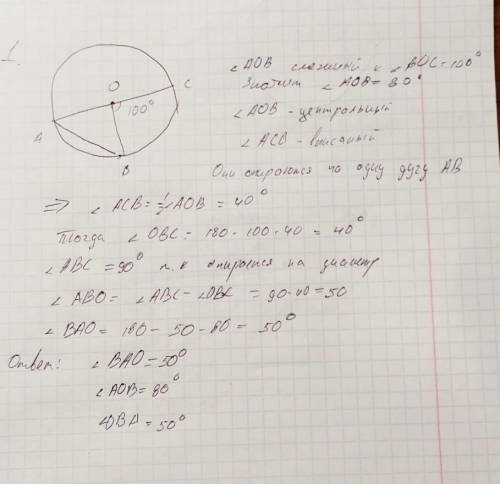 1.
O
C
100°
A
B
∠AOB смежный с ∠BOC=100°
Значит ∠AOB=80°
∠AOB - центральный
∠ACB - вписанный
Они опираются на одну дугу AB
⇒ ∠ACB = ½∠AOB = 40°
Тогда ∠OBC = 180-100-40 = 40°
∠ABC = 90° т.к опирается на диаметр
∠ABO = ∠ABC - ∠OBC = 90-40=50
∠BAO = 180 - 50 - 80 = 50°
Ответ: ∠BAO=50°
∠AOB=80°
∠OBA=50°